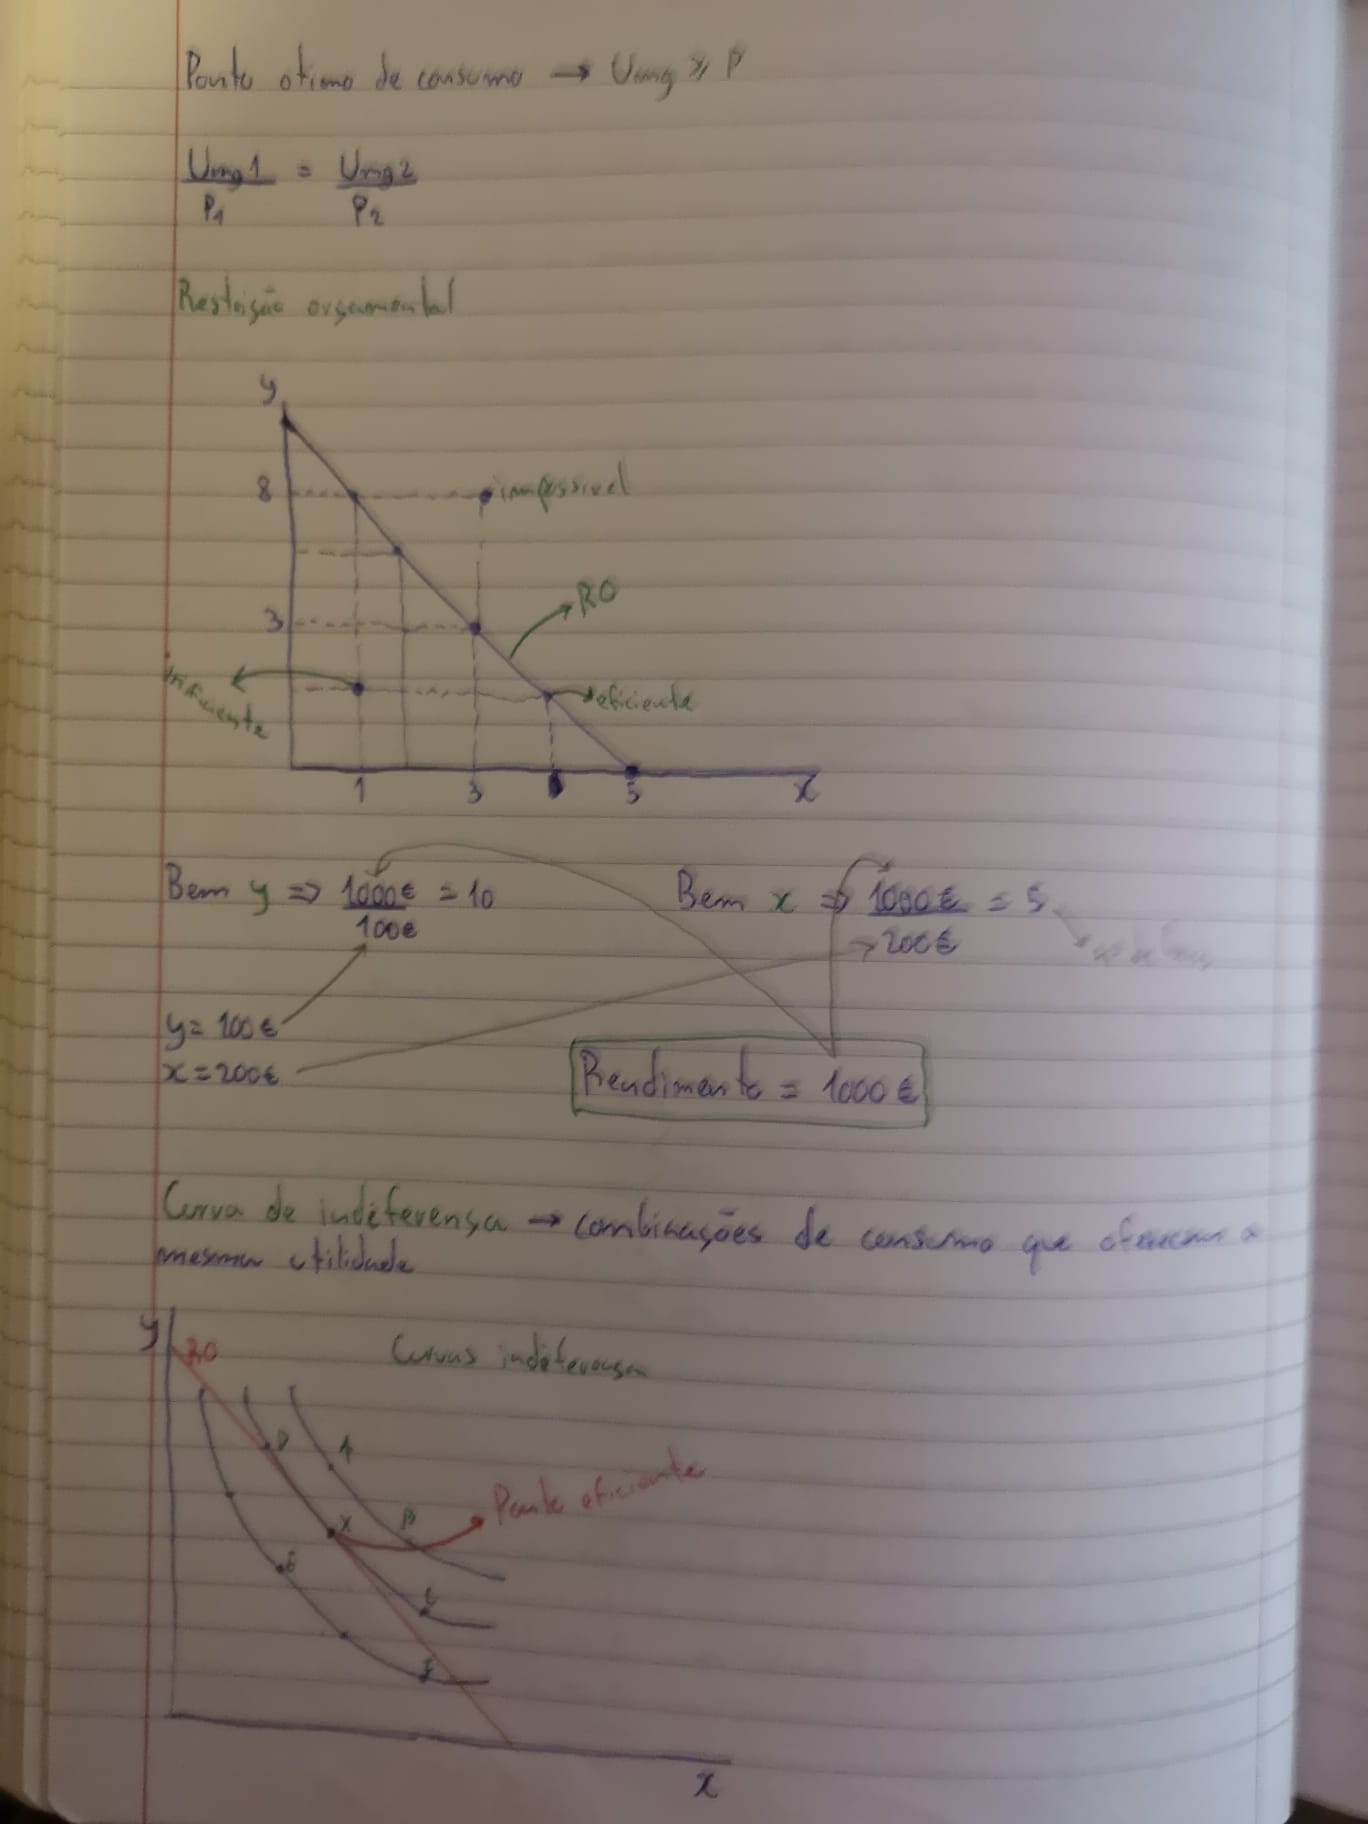 Ponto otimo de consumo → Umg ≥ P
Umg1 = Umg2
P1 P2
Restrição orçamental
y
8
impossivel
RO
3
Inficiente
eficiente
1 3 5 x
Bem y => 1000€ = 10
100€
Bem x => 1000€ = 5
200€
y= 100€
x=200€
Rendimento = 1000€
Curva de indeferensa → combinações de consumo que oferecem a
mesma utilidade
y
RO
Curvas indeferensa
D
A
Ponto eficiente
X
B
E
C
F
x